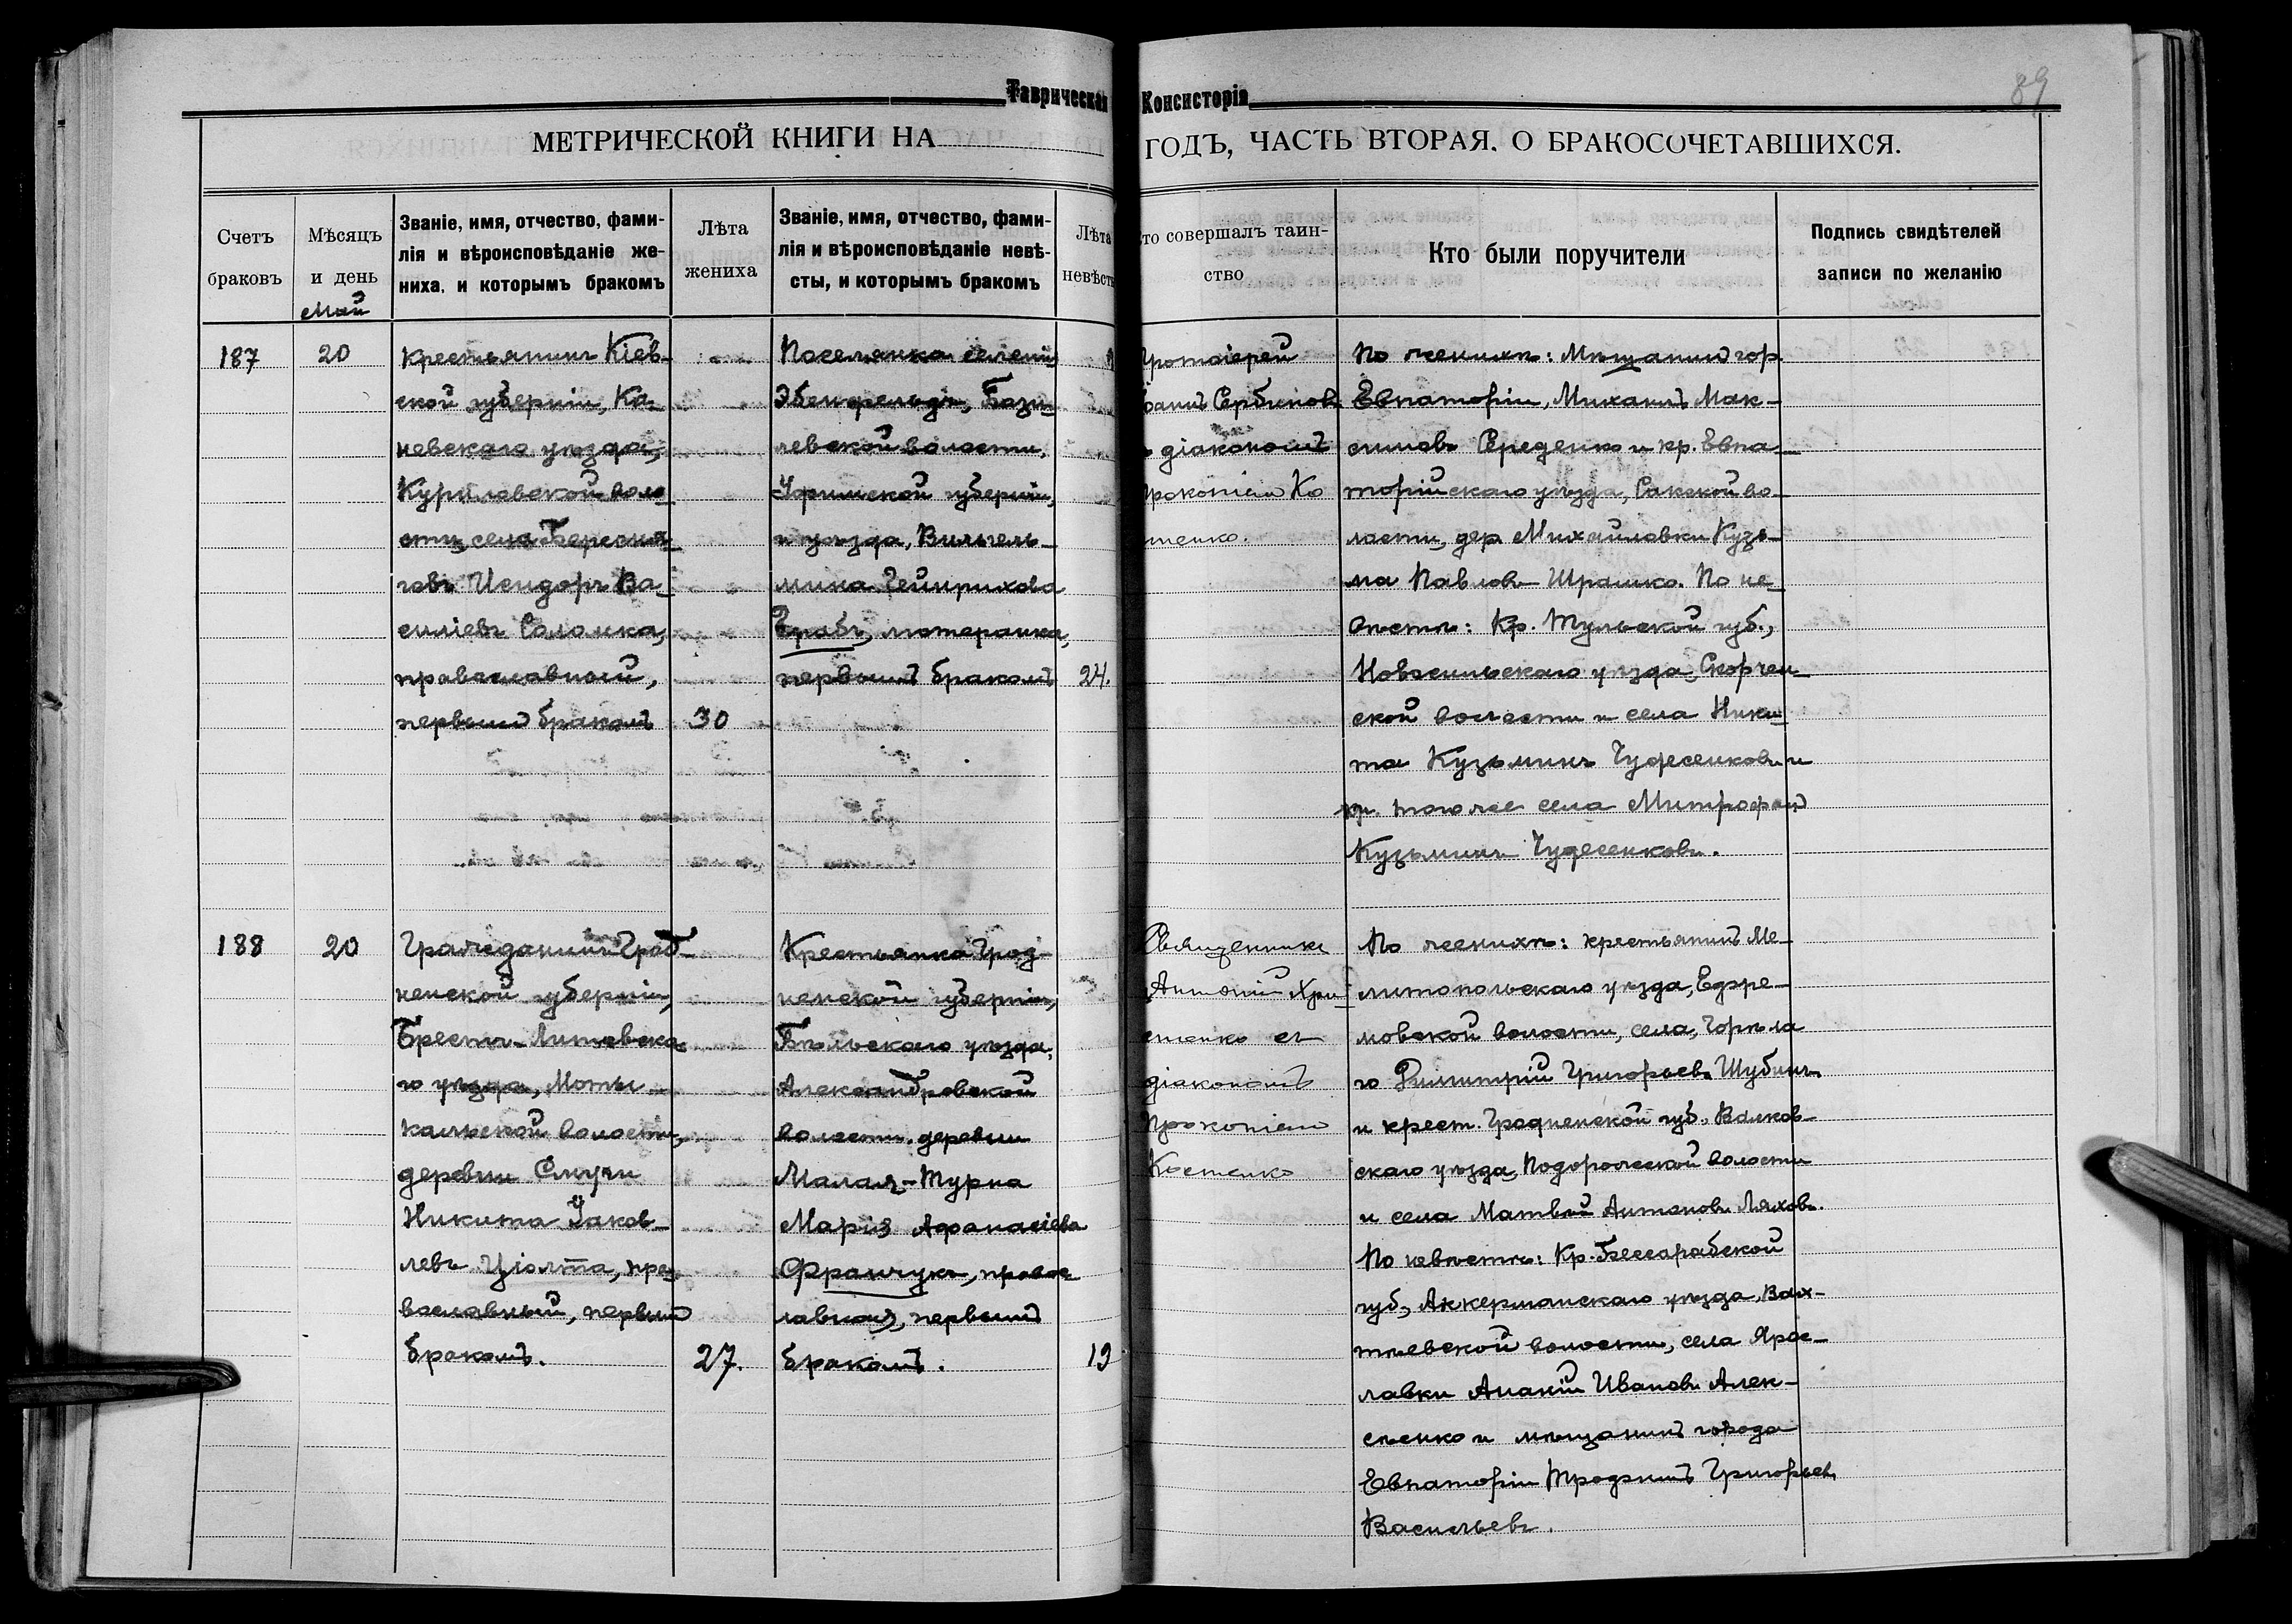 Таврическая Консисторія
89
МЕТРИЧЕСКОЙ КНИГИ НА ГОДЪ, ЧАСТЬ ВТОРАЯ. О БРАКОСОЧЕТАВШИХСЯ.
Счетъ
браковъ
Мѣсяцъ
и день
Май
Званіе, имя, отчество, фами-
лія и вѣроисповѣданіе же-
ниха, и которымъ бракомъ
Лѣта
жениха
Званіе, имя, отчество, фами-
лія и вѣроисповѣданіе невѣ-
сты, и которымъ бракомъ
Лѣта
невѣсты
то совершалъ таин-
ство
Кто были поручители
Подпись свидѣтелей
записи по желанію
187
20
Крестьянинъ Кіев-
ской губерніи, Ка-
невскаго уѣзда,
Куриловской воло
сти, села Бересня-
говъ Исидоръ Ва-
силіевъ Соломка,
православный,
первымъ бракомъ
30
Поселянка селенія
Эбенфельдъ, Бази-
левской волости,
Уфимской губерніи,
и уѣзда, Вильгель-
мина Гейнрихова
Грабъ, лютеранка,
первымъ бракомъ
24.
ротоіерей
оаннъ Сербиновъ
ъ діакономъ
рокопіемъ Ко
тенко.
По женихѣ: Мѣщанинъ гор.
Евпаторіи, Михаилъ Мак-
симовъ Середенко и кр. Евпа-
торійскаго уѣзда, Сакской во-
лости, дер Михайловки Кузь-
ма Павловъ Шрамко. По не-
вѣстѣ: Кр. Тульской губ.,
Новосильскаго уѣзда, Скорчен-
ской волости и села Ники-
та Кузьминъ Чудесенковъ и
кр. того же села Митрофанъ
Кузьминъ Чудесенковъ.
188
20
Гражданинъ Грод-
ненской губерніи,
Брестъ-Литовска
го уѣзда, Моты-
кальской волости,
деревни Смуги
Никита Іаков-
левъ Ціолта, пра
вославный, первымъ
бракомъ.
27.
Крестьянка Грод-
ненской губерніи,
Бѣльскаго уѣзда,
Александровской
волости, деревни
Малая-Турна
Марія Афанасіева
Францукъ, правос
лавная, первымъ
бракомъ.
19
Священникъ
Антоній Хри-
стенко съ
діакономъ
Прокопіемъ
Костенко
По женихѣ: крестьянинъ Ме-
литопольскаго уѣзда, Ефре-
мовской волости, села, Горѣла
го Димитрій Григорьевъ Шубинъ
и крест. Гродненской губ., Волков-
скаго уѣзда, Подорожской волости
и села Матвѣй Антоновъ Ляховъ.
По невѣстѣ: Кр. Бессарабской
губ., Аккерманскаго уѣзда,
волости, села Ярос-
лавки Ананій Ивановъ Алек-
сѣенко и мѣщанинъ города
Евпаторіи Трофимъ Григорьевъ
Васильевъ.